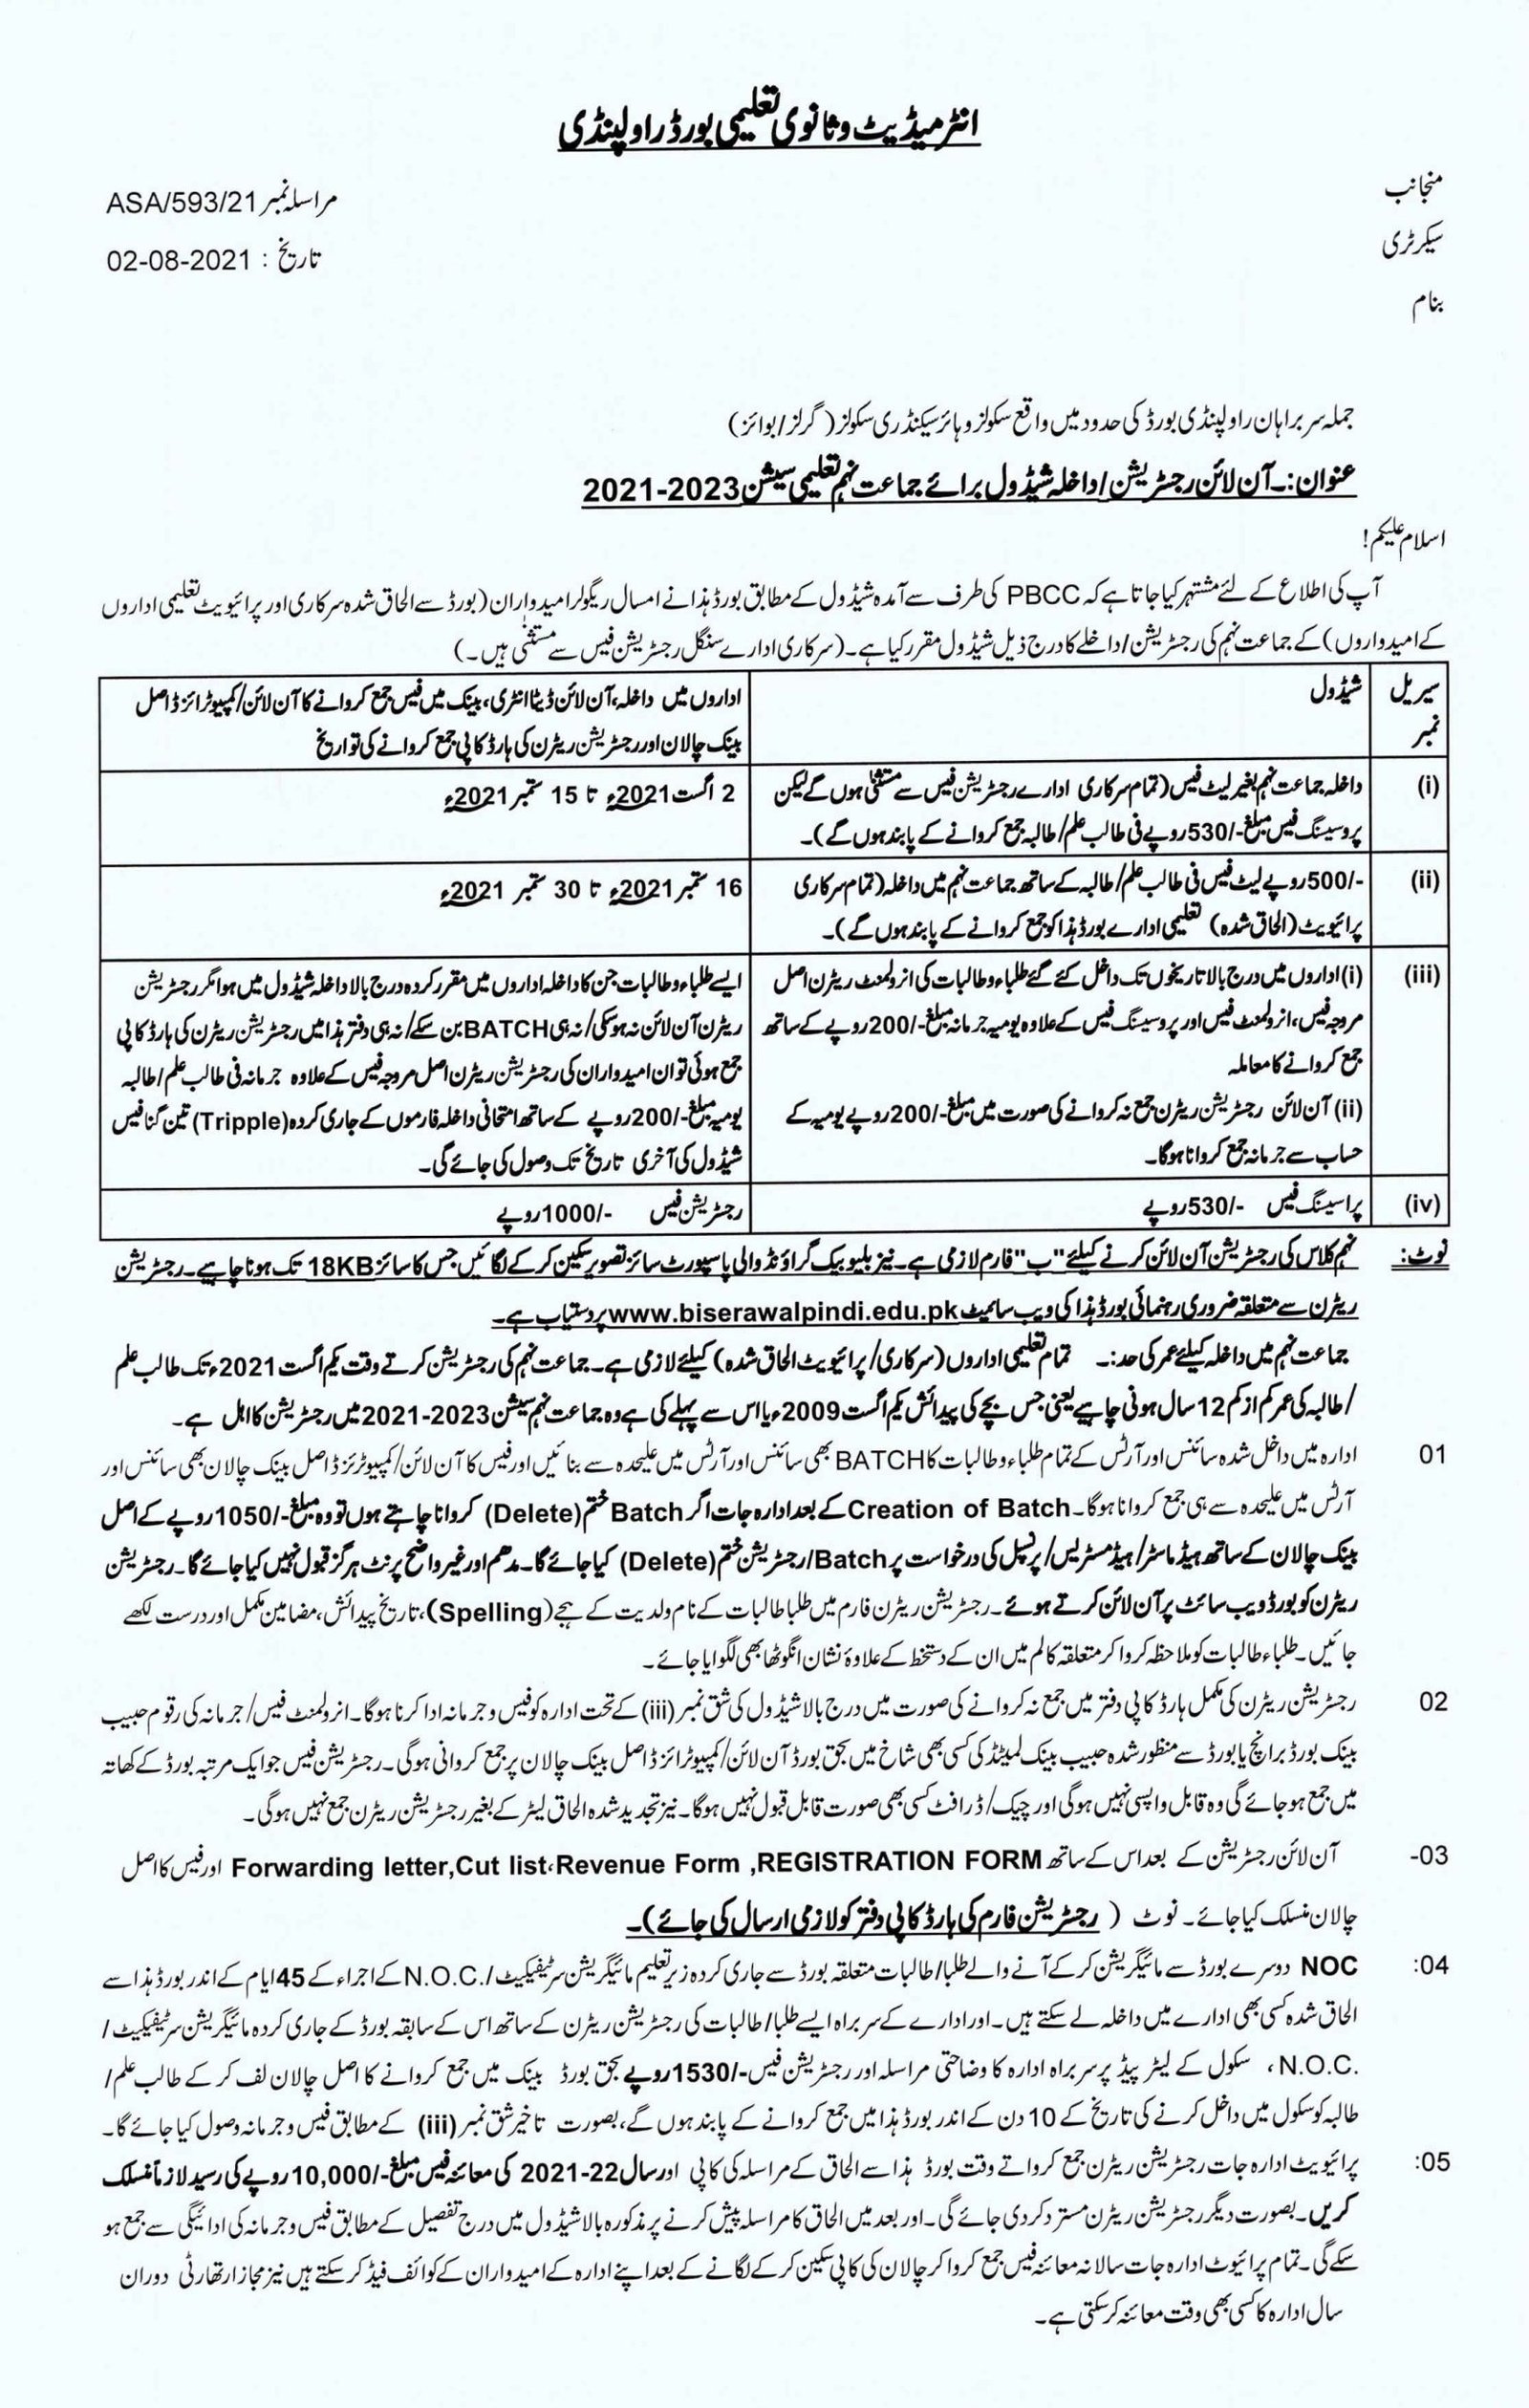 انٹرمیڈیٹ و ثانوی تعلیمی بورڈ راولپنڈی
منجانب
مراسلہ نمبر ASA/593/21
سیکرٹری
تاریخ : 02-08-2021
بنام
جملہ سربراہان راولپنڈی بورڈ کی حدود میں واقع سکولز و ہائر سیکنڈری سکولز (گرلز/بوائز)
عنوان:۔ آن لائن رجسٹریشن/داخلہ شیڈول برائے جماعت نہم تعلیمی سیشن 2021-2023
اسلام علیکم!
آپ کی اطلاع کے لئے مشتہر کیا جاتا ہے کہ PBCC کی طرف سے آمدہ شیڈول کے مطابق بورڈ ہذا نے امسال ریگولر امیدواران (بورڈ سے الحاق شدہ سرکاری اور پرائیویٹ تعلیمی اداروں
کے امیدواروں) کے جماعت نہم کی رجسٹریشن/داخلے کا درج ذیل شیڈول مقرر کیا ہے۔ (سرکاری ادارے سنگل رجسٹریشن فیس سے مستثنیٰ ہیں۔)
سیریل
نمبر
شیڈول
اداروں میں داخلہ، آن لائن ڈیٹا انٹری، بینک میں فیس جمع کروانے کا آن لائن/کمپیوٹرائزڈ اصل
بینک چالان اور رجسٹریشن ریٹرن کی ہارڈ کاپی جمع کروانے کی تواریخ
(i)
داخلہ جماعت نہم بغیر لیٹ فیس (تمام سرکاری ادارے رجسٹریشن فیس سے مستثنیٰ ہوں گے لیکن
پروسیسنگ فیس مبلغ -/530 روپے فی طالب علم/طالبہ جمع کروانے کے پابند ہوں گے)۔
2 اگست 2021ء تا 15 ستمبر 2021ء
(ii)
-/500 روپے لیٹ فیس فی طالب علم/طالبہ کے ساتھ جماعت نہم میں داخلہ (تمام سرکاری
پرائیویٹ (الحاق شدہ) تعلیمی ادارے بورڈ ہذا کو جمع کروانے کے پابند ہوں گے)۔
16 ستمبر 2021ء تا 30 ستمبر 2021ء
(iii)
(i) اداروں میں درج بالا تاریخوں تک داخل کئے گئے طلباء و طالبات کی انرولمنٹ ریٹرن اصل
مروجہ فیس، انرولمنٹ فیس اور پروسیسنگ فیس کے علاوہ یومیہ جرمانہ مبلغ -/200 روپے کے ساتھ
جمع کروانے کا معاملہ
(ii) آن لائن رجسٹریشن ریٹرن جمع نہ کروانے کی صورت میں مبلغ -/200 روپے یومیہ کے
حساب سے جرمانہ جمع کروانا ہوگا۔
ایسے طلباء و طالبات جن کا داخلہ اداروں میں مقرر کردہ درج بالا داخلہ شیڈول میں ہوا مگر رجسٹریشن
ریٹرن آن لائن نہ ہو سکی/نہ ہی BATCH بن سکے/نہ ہی دفتر ہذا میں رجسٹریشن ریٹرن کی ہارڈ کاپی
جمع ہوئی تو ان امیدواران کی رجسٹریشن ریٹرن اصل مروجہ فیس کے علاوہ جرمانہ فی طالب علم/طالبہ
یومیہ مبلغ -/200 روپے کے ساتھ امتحانی داخلہ فارموں کے جاری کردہ (Tripple) تین گنا فیس
شیڈول کی آخری تاریخ تک وصول کی جائے گی۔
(iv)
پراسیسنگ فیس -/530 روپے
رجسٹریشن فیس -/1000 روپے
نوٹ: نہم کلاس کی رجسٹریشن آن لائن کرنے کیلئے "ب" فارم لازمی ہے۔ نیز بلیو بیک گراؤنڈ والی پاسپورٹ سائز تصویر سکین کر کے لگائیں جس کا سائز 18KB تک ہونا چاہیے۔ رجسٹریشن
ریٹرن سے متعلقہ ضروری رہنمائی بورڈ ہذا کی ویب سائیٹ www.biserawalpindi.edu.pk پر دستیاب ہے۔
جماعت نہم میں داخلہ کیلئے عمر کی حد:۔ تمام تعلیمی اداروں (سرکاری/پرائیویٹ الحاق شدہ) کیلئے لازمی ہے۔ جماعت نہم کی رجسٹریشن کرتے وقت یکم اگست 2021ء تک طالب علم
/طالبہ کی عمر کم از کم 12 سال ہونی چاہیے یعنی جس بچے کی پیدائش یکم اگست 2009ء یا اس سے پہلے کی ہے وہ جماعت نہم سیشن 2021-2023 میں رجسٹریشن کا اہل ہے۔
01 ادارہ میں داخل شدہ سائنس اور آرٹس کے تمام طلباء و طالبات کا BATCH بھی سائنس اور آرٹس میں علیحدہ سے بنائیں اور فیس کا آن لائن/کمپیوٹرئزڈ اصل بینک چالان بھی سائنس اور
آرٹس میں علیحدہ سے ہی جمع کروانا ہوگا۔ Creation of Batch کے بعد ادارہ جات اگر Batch ختم (Delete) کروانا چاہتے ہوں تو وہ مبلغ -/1050 روپے کے اصل
بینک چالان کے ساتھ ہیڈ ماسٹر/ہیڈ مسٹریس/پرنسپل کی درخواست پر Batch/رجسٹریشن ختم (Delete) کیا جائے گا۔ مدھم اور غیر واضح پرنٹ ہرگز قبول نہیں کیا جائے گا۔ رجسٹریشن
ریٹرن کو بورڈ ویب سائٹ پر آن لائن کرتے ہوئے۔ رجسٹریشن ریٹرن فارم میں طلبا طالبات کے نام ولدیت کے ہجے (Spelling)، تاریخ پیدائش، مضامین مکمل اور درست لکھے
جائیں۔ طلباء طالبات کو ملاحظہ کروا کر متعلقہ کالم میں ان کے دستخط کے علاوۂ نشان انگوٹھا بھی لگوایا جائے۔
02 رجسٹریشن ریٹرن کی مکمل ہارڈ کاپی دفتر میں جمع نہ کروانے کی صورت میں درج بالا شیڈول کی شق نمبر (iii) کے تحت ادارہ کو فیس و جرمانہ ادا کرنا ہوگا۔ انرولمنٹ فیس/جرمانہ کی رقوم حبیب
بینک بورڈ برانچ یا بورڈ سے منظور شدہ حبیب بینک لمیٹڈ کی کسی بھی شاخ میں بحق بورڈ آن لائن/کمپیوٹرائزڈ اصل بینک چالان پر جمع کروانی ہوگی۔ رجسٹریشن فیس جو ایک مرتبہ بورڈ کے کھاتہ
میں جمع ہو جائے گی وہ قابل واپسی نہیں ہوگی اور چیک/ڈرافٹ کسی بھی صورت قابل قبول نہیں ہوگا۔ نیز تجدید شدہ الحاق لیٹر کے بغیر رجسٹریشن ریٹرن جمع نہیں ہوگی۔
03- آن لائن رجسٹریشن کے بعد اس کے ساتھ Forwarding letter,Cut list،Revenue Form ,REGISTRATION FORM اور فیس کا اصل
چالان منسلک کیا جائے۔ نوٹ (رجسٹریشن فارم کی ہارڈ کاپی دفتر کو لازمی ارسال کی جائے)۔
04: NOC دوسرے بورڈ سے مائیگریشن کر کے آنے والے طلبا/طالبات متعلقہ بورڈ سے جاری کردہ زیر تعلیم مائیگریشن سرٹیفیکیٹ/.N.O.C کے اجراء کے 45 ایام کے اندر بورڈ ہذا سے
الحاق شدہ کسی بھی ادارے میں داخلہ لے سکتے ہیں۔ اور ادارے کے سربراہ ایسے طلبا/طالبات کی رجسٹریشن ریٹرن کے ساتھ اس کے سابقہ بورڈ کے جاری کردہ مائیگریشن سرٹیفیکیٹ/
.N.O.C، سکول کے لیٹر پیڈ پر سربراہ ادارہ کا وضاحتی مراسلہ اور رجسٹریشن فیس -/1530 روپے بحق بورڈ بینک میں جمع کروانے کا اصل چالان لف کر کے طالب علم/
طالبہ کو سکول میں داخل کرنے کی تاریخ کے 10 دن کے اندر بورڈ ہذا میں جمع کروانے کے پابند ہوں گے، بصورت تاخیر شق نمبر (iii) کے مطابق فیس و جرمانہ وصول کیا جائے گا۔
05: پرائیویٹ ادارہ جات رجسٹریشن ریٹرن جمع کرواتے وقت بورڈ ہذا سے الحاق کے مراسلہ کی کاپی اور سال 2021-22 کی معائنہ فیس مبلغ -/10,000 روپے کی رسید لازماً منسلک
کریں۔ بصورت دیگر رجسٹریشن ریٹرن مسترد کر دی جائے گی۔ اور بعد میں الحاق کا مراسلہ پیش کرنے پر مذکورہ بالا شیڈول میں درج تفصیل کے مطابق فیس و جرمانہ کی ادائیگی سے جمع ہو
سکے گی۔ تمام پرائیوٹ ادارہ جات سالانہ معائنہ فیس جمع کروا کر چالان کی کاپی سکین کر کے لگانے کے بعد اپنے ادارہ کے امیدواران کے کوائف فیڈ کر سکتے ہیں نیز مجاز اتھارٹی دوران
سال ادارہ کا کسی بھی وقت معائنہ کر سکتی ہے۔